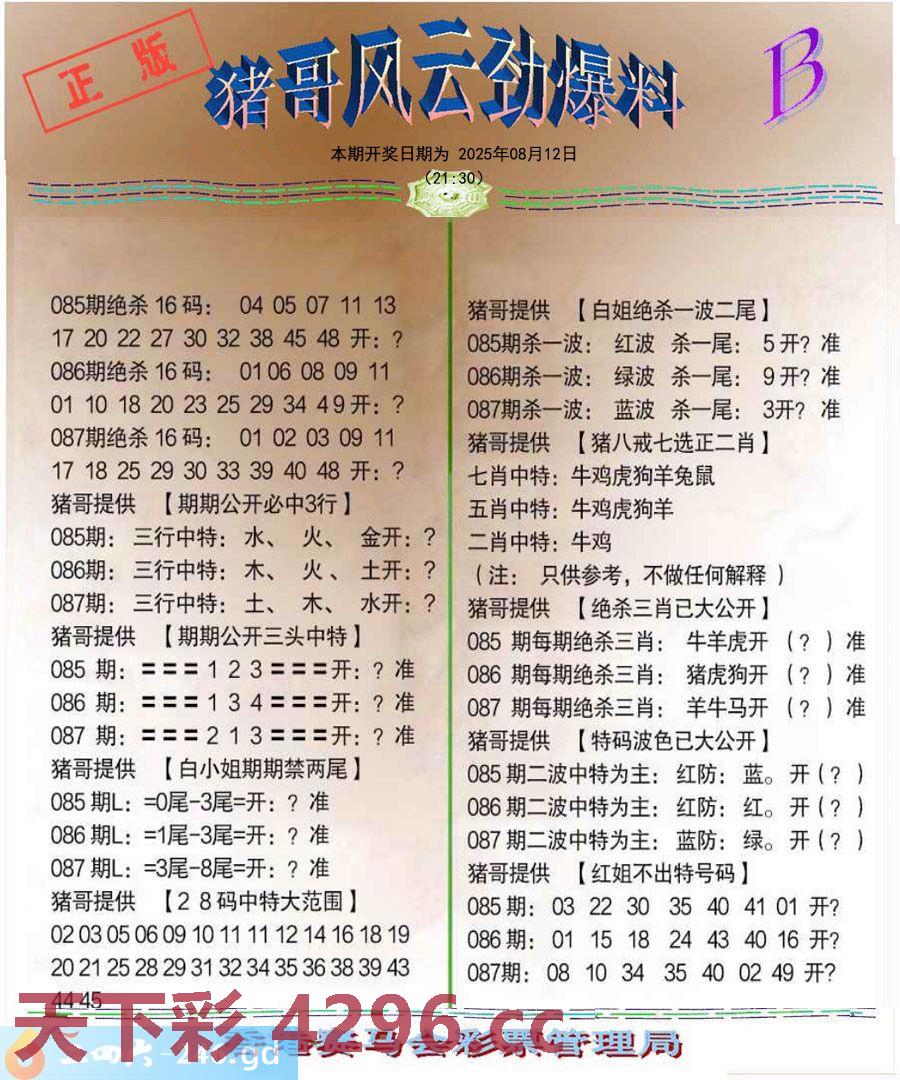 正版
猪哥风云劲爆料
B
本期开奖日期为 2025年08月12日
(21:30)
085期绝杀16码： 04 05 07 11 13
17 20 22 27 30 32 38 45 48 开：?
086期绝杀16码： 01 06 08 09 11
01 10 18 20 23 25 29 34 49开：?
087期绝杀16码： 01 02 03 09 11
17 18 25 29 30 33 39 40 48 开：?
猪哥提供 【期期公开必中3行】
085期：三行中特：水、 火、 金开：?
086期：三行中特：木、 火、 土开：?
087期：三行中特：土、 木、 水开：?
猪哥提供 【期期公开三头中特】
085 期：〓〓〓1 2 3〓〓〓开：? 准
086 期：〓〓〓1 3 4〓〓〓开：? 准
087 期：〓〓〓2 1 3〓〓〓开：? 准
猪哥提供 【白小姐期期禁两尾】
085期L：=0尾-3尾=开：? 准
086期L：=1尾-3尾=开：? 准
087期L：=3尾-8尾=开：? 准
猪哥提供 【2 8码中特大范围】
02 03 05 06 09 10 11 11 12 14 16 18 19
20 21 25 28 29 31 32 34 35 36 38 39 43
44 45
猪哥提供 【白姐绝杀一波二尾】
085期杀一波： 红波 杀一尾： 5开? 准
086期杀一波： 绿波 杀一尾： 9开? 准
087期杀一波： 蓝波 杀一尾： 3开? 准
猪哥提供 【猪八戒七选正二肖】
七肖中特：牛鸡虎狗羊兔鼠
五肖中特：牛鸡虎狗羊
二肖中特：牛鸡
（注： 只供参考，不做任何解释 ）
猪哥提供 【绝杀三肖已大公开】
085 期每期绝杀三肖： 牛羊虎开 （? ）准
086 期每期绝杀三肖： 猪虎狗开 （? ）准
087 期每期绝杀三肖： 羊牛马开 （? ）准
猪哥提供 【特码波色已大公开】
085期二波中特为主：红防：蓝。开（? ）
086期二波中特为主：红防：红。开（? ）
087期二波中特为主：蓝防：绿。开（? ）
猪哥提供 【红姐不出特号码】
085期： 03 22 30 35 40 41 01 开?
086期： 01 15 18 24 43 40 16 开?
087期： 08 10 34 35 40 02 49 开?
天下彩 4296.cc
马会彩票管理局